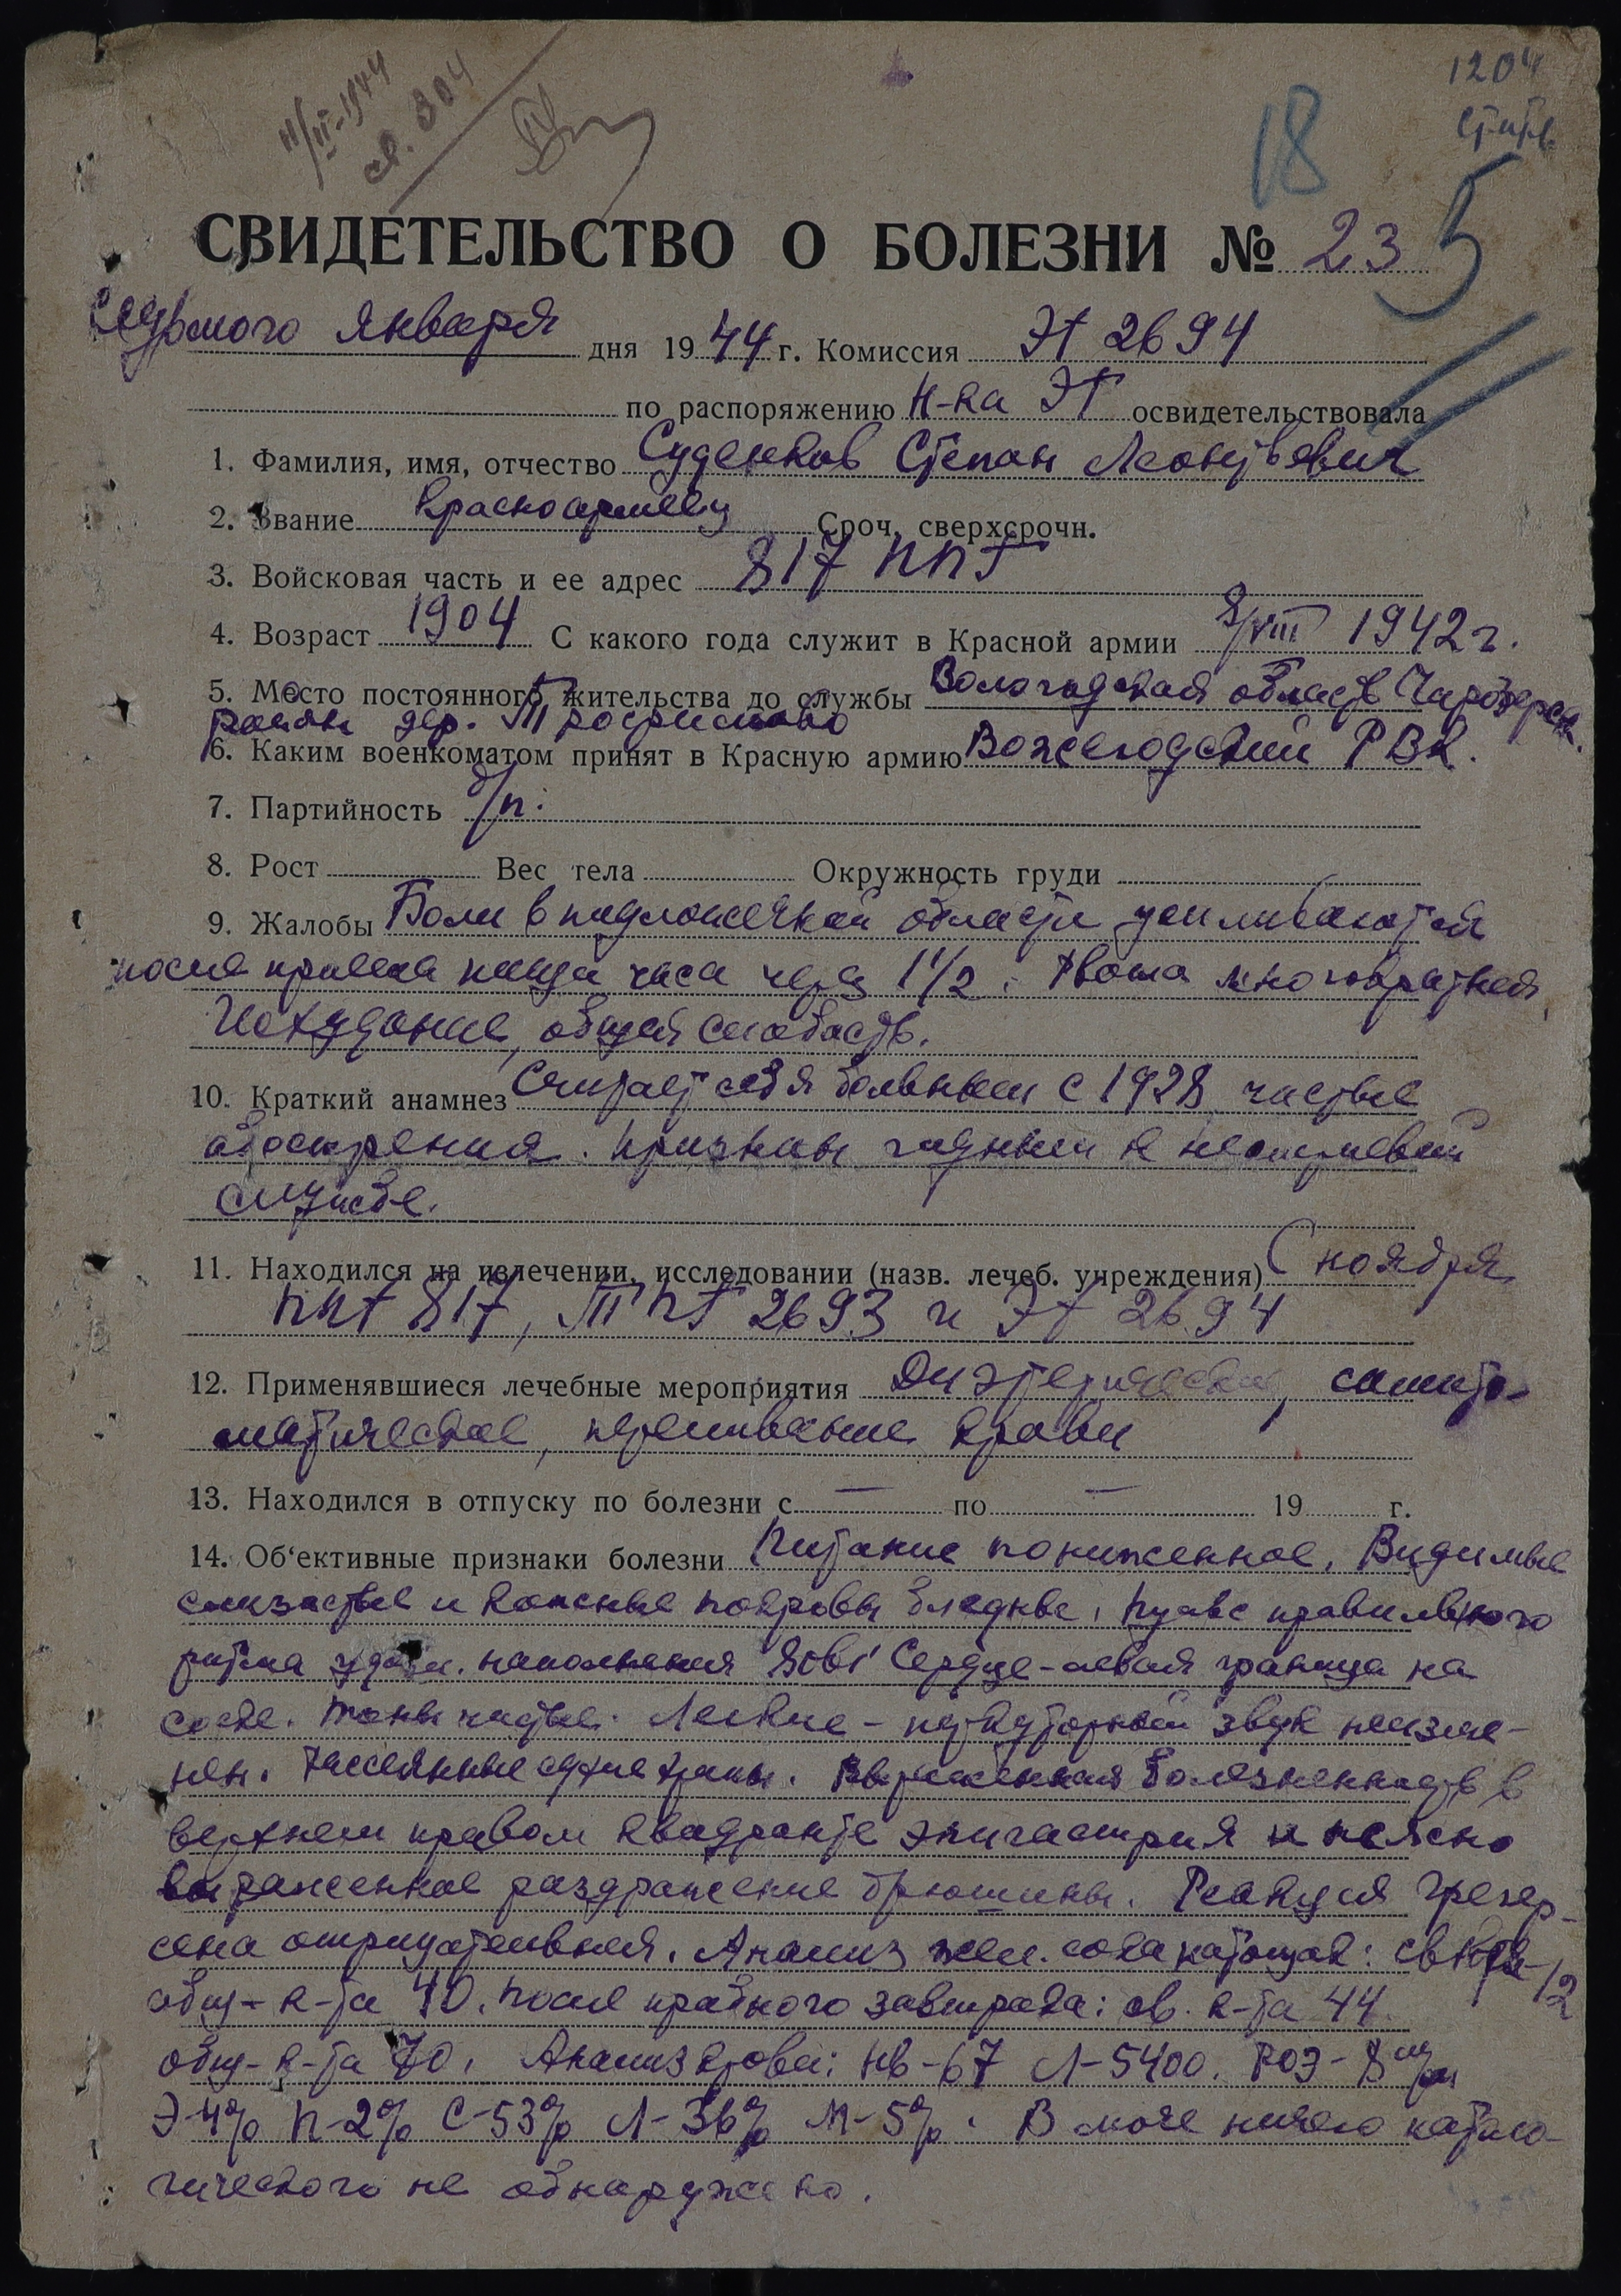 11/II-1944
св. 304
1204
18
5
СВИДЕТЕЛЬСТВО О БОЛЕЗНИ № 23
Седьмого января дня 1944 г. Комиссия ЭГ 2694
по распоряжению Н-ка ЭГ освидетельствовала
1. Фамилия, имя, отчество Суденков Степан Леонтьевич
2. Звание Красноармеец Сроч. сверхсрочн.
3. Войсковая часть и ее адрес 817 ППГ
4. Возраст 1904 С какого года служит в Красной армии 8/VIII 1942 г.
5. Место постоянного жительства до службы Вологодская область Чарозерск.
район дер.
6. Каким военкоматом принят в Красную армию Вожегодский РВК.
7. Партийность б/п.
8. Рост Вес тела Окружность груди
9. Жалобы Боли в подложечной области усиливаются
после приема пищи часа через 1 1/2. Рвота многократная,
Исхудание, общая слабость.
10. Краткий анамнез Считает себя больным с 1928, частые
обострения. Признан годным к нестроевой
службе.
11. Находился на излечении, исследовании (назв. лечеб. учреждения) С ноября
ППГ 817, ТППГ 2693 и ЭГ 2694
12. Применявшиеся лечебные мероприятия Диэтическое, симпто-
матическое, переливание крови
13. Находился в отпуску по болезни с — по — 19 г.
14. Об'ективные признаки болезни Питание пониженное. Видимые
слизистые и кожные покровы бледные. Пульс правильного
ритма удовл. наполнения 80 в 1' Сердце - левая граница на
соске. Тоны чистые. Легкие - перкуторный звук неизме-
нен. Рассеянные сухие хрипы. Выраженная болезненность в
верхнем правом квадранте эпигастрия и неясно
выраженное раздражение брюшины. Реакция Грегер-
сена отрицательная. Анализ жел. сока натощак: св к-та - 12
общ - к-та 40. После пробного завтрака: св. к-та 44
общ - к-та 70. Анализ крови: Нв - 67 Л - 5400. РОЭ - 8 м/м
Э-4% П-2% С-53% Л-36% М-5%. В моче ничего патоло-
гического не обнаружено.